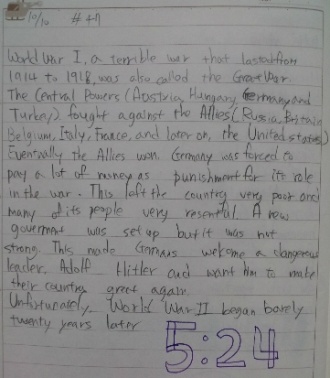 10/10 # 47
World War I, a terrible war that lasted from
1914 to 1918, was also called the Great War.
The Central Powers (Austria Hungary, Germany and
Turkey) fought against the Allies (Russia, Britain
Belgium, Italy, France, and later on, the United states)
Eventually the Allies won. Germany was forced to
pay a lot of money as punishment for its role
in the war. This left the country very poor and
many of its people very resentful. A new
goverment was set up but it was not
strong. This made Germans welcome a dangerous
leader. Adolf Hitler and want him to make
their country great again.
Unfortunately, World War II began barely
twenty years later
5:24